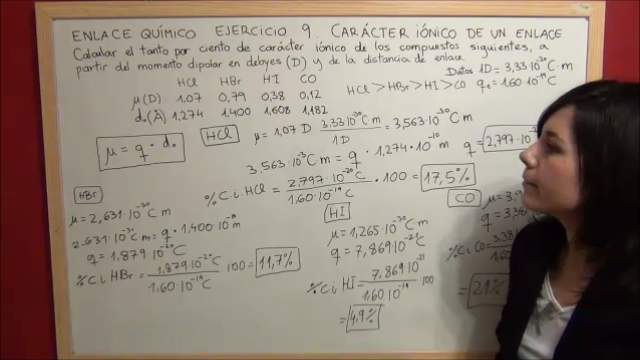 ENLACE QUÍMICO EJERCICIO 9. CARÁCTER IÓNICO DE UN ENLACE
Calcular el tanto por ciento de carácter iónico de los compuestos siguientes, a
partir del momento dipolar en debyes (D) y de la distancia de enlace.
Datos 1D = 3,33·10⁻³⁰ C·m
qe = 1,60·10⁻¹⁹ C
HCl HBr HI CO
μ(D) 1,07 0,79 0,38 0,12
d₀(Å) 1,274 1,400 1,608 1,182
HCl > HBr > HI > CO
μ = q · d₀
HCl
μ = 1,07 D 3,33·10⁻³⁰ C m / 1D = 3,563·10⁻³⁰ C m
3,563·10⁻³⁰ C m = q · 1,274·10⁻¹⁰ m
q = 2,797·10
% C i HCl = 2,797·10⁻²⁰ C / 1,60·10⁻¹⁹ C · 100 = 17,5%
HBr
μ = 2,631·10⁻³⁰ C m
2,631·10⁻³⁰ C m = q · 1,400·10⁻¹⁰ m
q = 1,879·10⁻²⁰ C
% C i HBr = 1,879·10⁻²⁰ C / 1,60·10⁻¹⁹ C 100 = 11,7%
HI
μ = 1,265·10⁻³⁰ C m
q = 7,869·10⁻²¹ C
% C i HI = 7,869·10⁻²¹ / 1,60·10⁻¹⁹ 100
= 4,9%
CO
μ = 3,9
q = 3,38
% C i CO = 3,38 / 1,60
= 2,1%